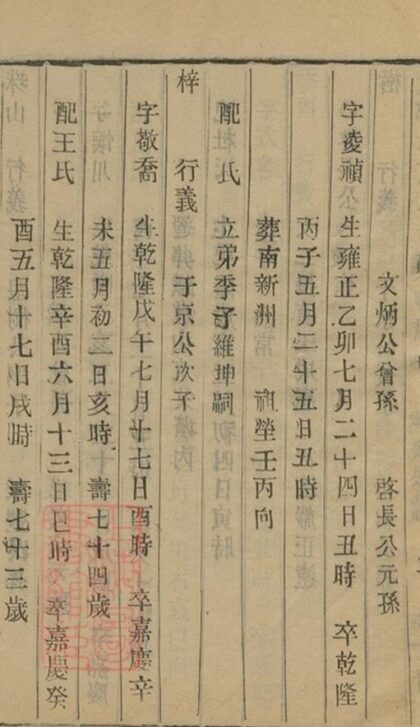 文炳公曾孫 啓長公元孫
字菱禎 生雍正乙卯七月二十四日丑時 卒乾隆
丙子五月二十五日丑時
葬南新洲 祖塋壬丙向
配氏 立弟季子維坤嗣
梓 行義 于京公次子
字敬喬 生乾隆戊午七月廿七日酉時 卒嘉慶辛
未五月初三日亥時 壽七十四歲
配王氏 生乾隆辛酉六月十三日巳時 卒嘉慶癸
酉五月十七日戌時 壽七十三歲